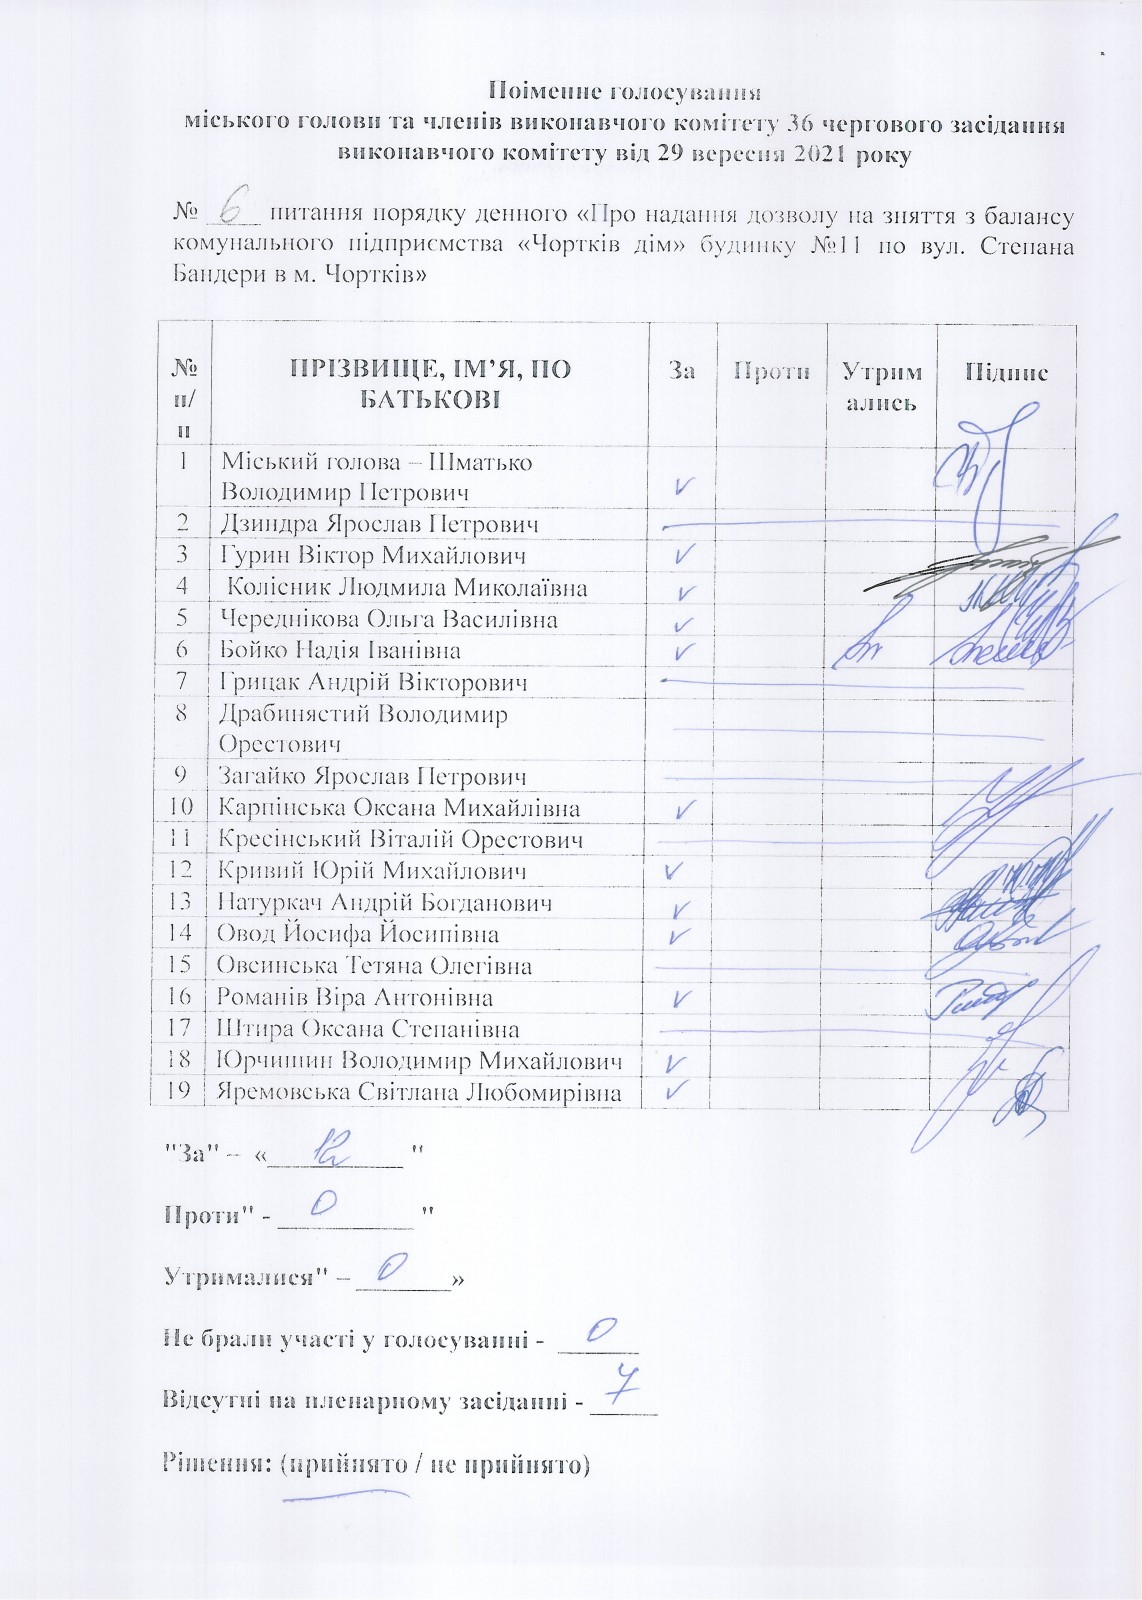 Поіменне голосування
міського голови та членів виконавчого комітету 36 чергового засідання
виконавчого комітету від 29 вересня 2021 року
№ 6 питання порядку денного «Про надання дозволу на зняття з балансу
комунального підприємства «Чортків дім» будинку №11 по вул. Степана
Бандери в м. Чортків»
№ ПРІЗВИЩЕ, ІМ’Я, ПО За Проти Утрим Підпис
п/ БАТЬКОВІ ались
п
1 Міський голова – Шматько
Володимир Петрович ✓
2 Дзиндра Ярослав Петрович
3 Гурин Віктор Михайлович ✓
4 Колісник Людмила Миколаївна ✓
5 Череднікова Ольга Василівна ✓
6 Бойко Надія Іванівна ✓
7 Грицак Андрій Вікторович
8 Драбинястий Володимир
Орестович
9 Загайко Ярослав Петрович
10 Карпінська Оксана Михайлівна ✓
11 Кресінський Віталій Орестович
12 Кривий Юрій Михайлович ✓
13 Натуркач Андрій Богданович ✓
14 Овод Йосифа Йосипівна ✓
15 Овсинська Тетяна Олегівна
16 Романів Віра Антонівна ✓
17 Штира Оксана Степанівна
18 Юрчишин Володимир Михайлович ✓
19 Яремовська Світлана Любомирівна ✓
"За" – « 12 "
Проти" - 0 "
Утрималися" – 0 »
Не брали участі у голосуванні - 0
Відсутні на пленарному засіданні - 7
Рішення: (прийнято / не прийнято)